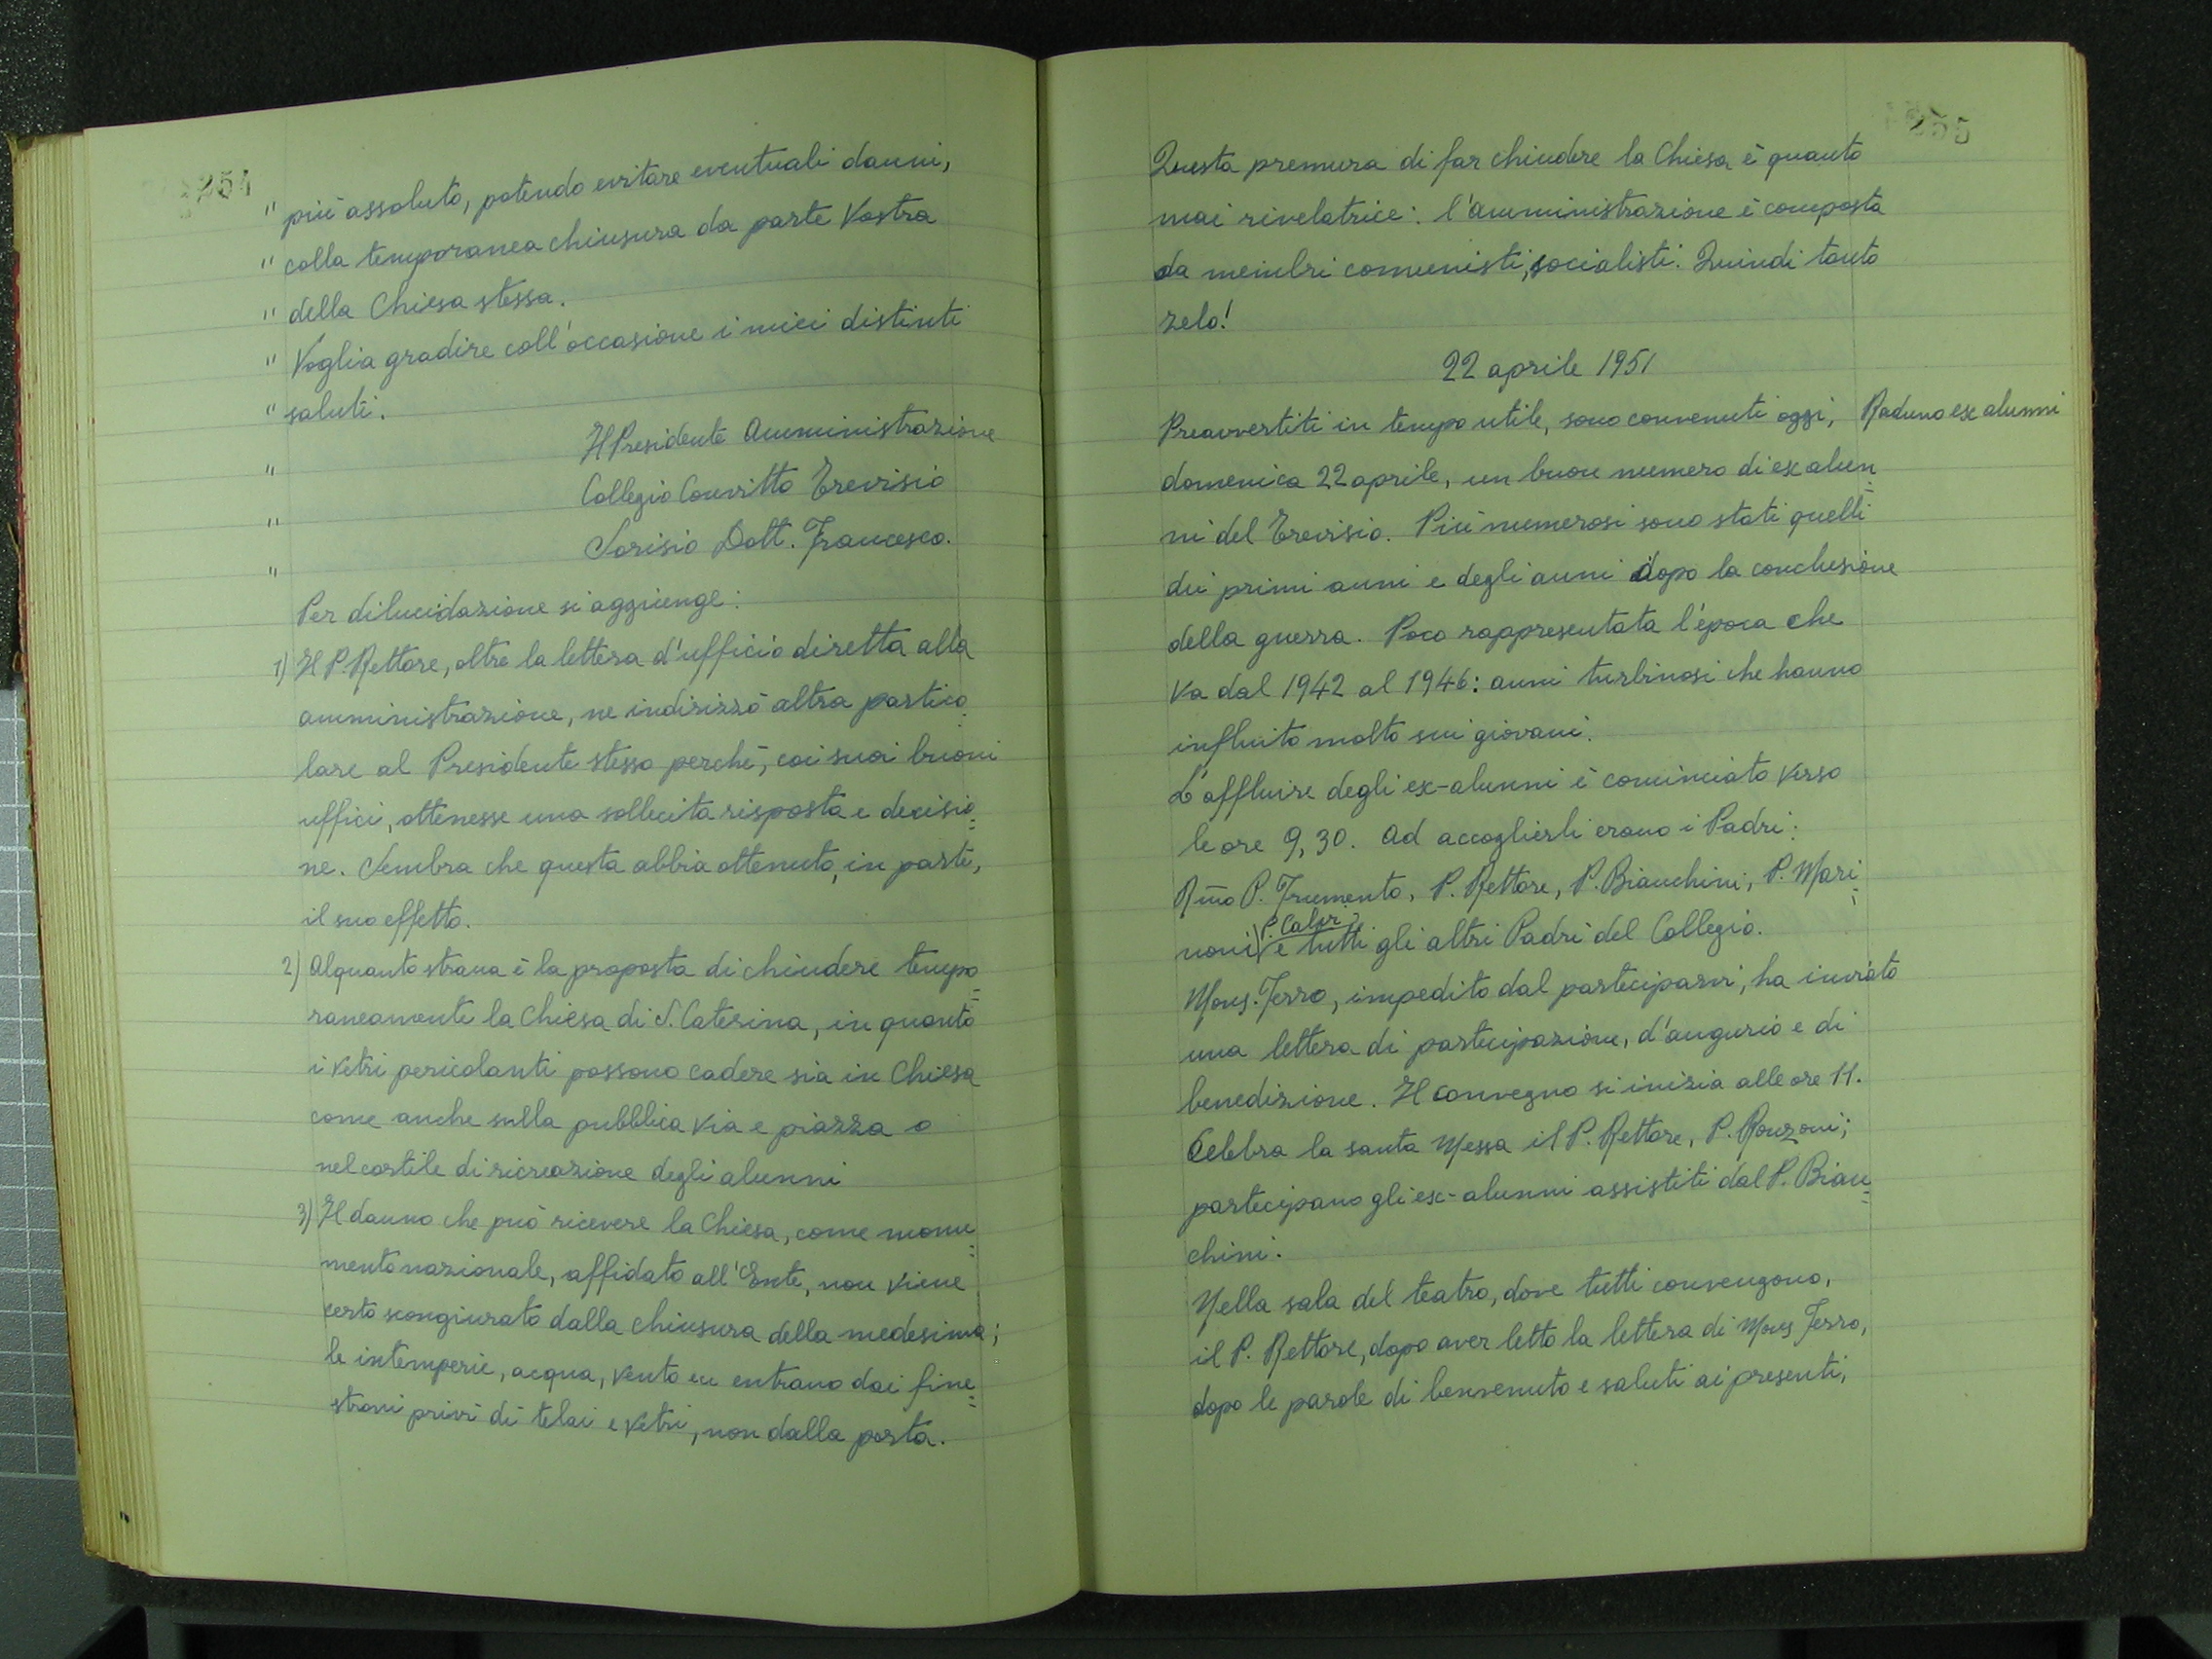 254
" più assoluto, potendo evitare eventuali danni,
" colla temporanea chiusura da parte Vostra
" della Chiesa stessa.
" Voglia gradire coll'occasione i miei distinti
" saluti.
" Il Presidente Amministrazione
" Collegio Convitto Trevisio
" Sorisio Dott. Francesco.
Per dilucidazione si aggiunge:
1) Il P. Rettore, oltre la lettera d'ufficio diretta alla
amministrazione, ne indirizzò altra partico=
lare al Presidente stesso perchè, coi suoi buoni
uffici, ottenesse una sollecita risposta e decisio=
ne. Sembra che questa abbia ottenuto, in parte,
il suo effetto.
2) Alquanto strana è la proposta di chiudere tempo=
raneamente la Chiesa di S. Caterina, in quanto
i vetri pericolanti possono cadere sia in Chiesa
come anche sulla pubblica via e piazza o
nel cortile di ricreazione degli alunni
3) Il danno che può ricevere la Chiesa, come monu=
mento nazionale, affidato all'Ente, non viene
certo scongiurato dalla chiusura della medesima;
le intemperie, acqua, vento ecc entrano dai fine=
stroni privi di telai e vetri, non dalla porta.
255
Questa premura di far chiudere la Chiesa è quanto
mai rivelatrice: l'amministrazione è composta
da membri comunisti, socialisti. Quindi tanto
zelo!
22 aprile 1951
Preavvertiti in tempo utile, sono convenuti oggi, Raduno ex alunni
domenica 22 aprile, un buon numero di ex alun=
ni del Trevisio. Più numerosi sono stati quelli
dei primi anni e degli anni dopo la conclusione
della guerra. Poco rappresentata l'epoca che
va dal 1942 al 1946: anni turbinosi che hanno
influito molto sui giovani.
L'affluire degli ex-alunni è cominciato verso
le ore 9,30. Ad accoglierli erano i Padri:
Rmo P. Frumento, P. Rettore, P. Bianchini, P. Mari=
P.
noni) e tutti gli altri Padri del Collegio.
Mons. Ferro, impedito dal parteciparvi, ha inviato
una lettera di partecipazione, d'augurio e di
benedizione. Il convegno si inizia alle ore 11.
Celebra la santa Messa il P. Rettore, P. Ronzoni;
partecipano gli ex-alunni assistiti dal P. Bian=
chini.
Nella sala del teatro, dove tutti convengono,
il P. Rettore, dopo aver letto la lettera di Mons Ferro,
dopo le parole di benvenuto e saluti ai presenti,